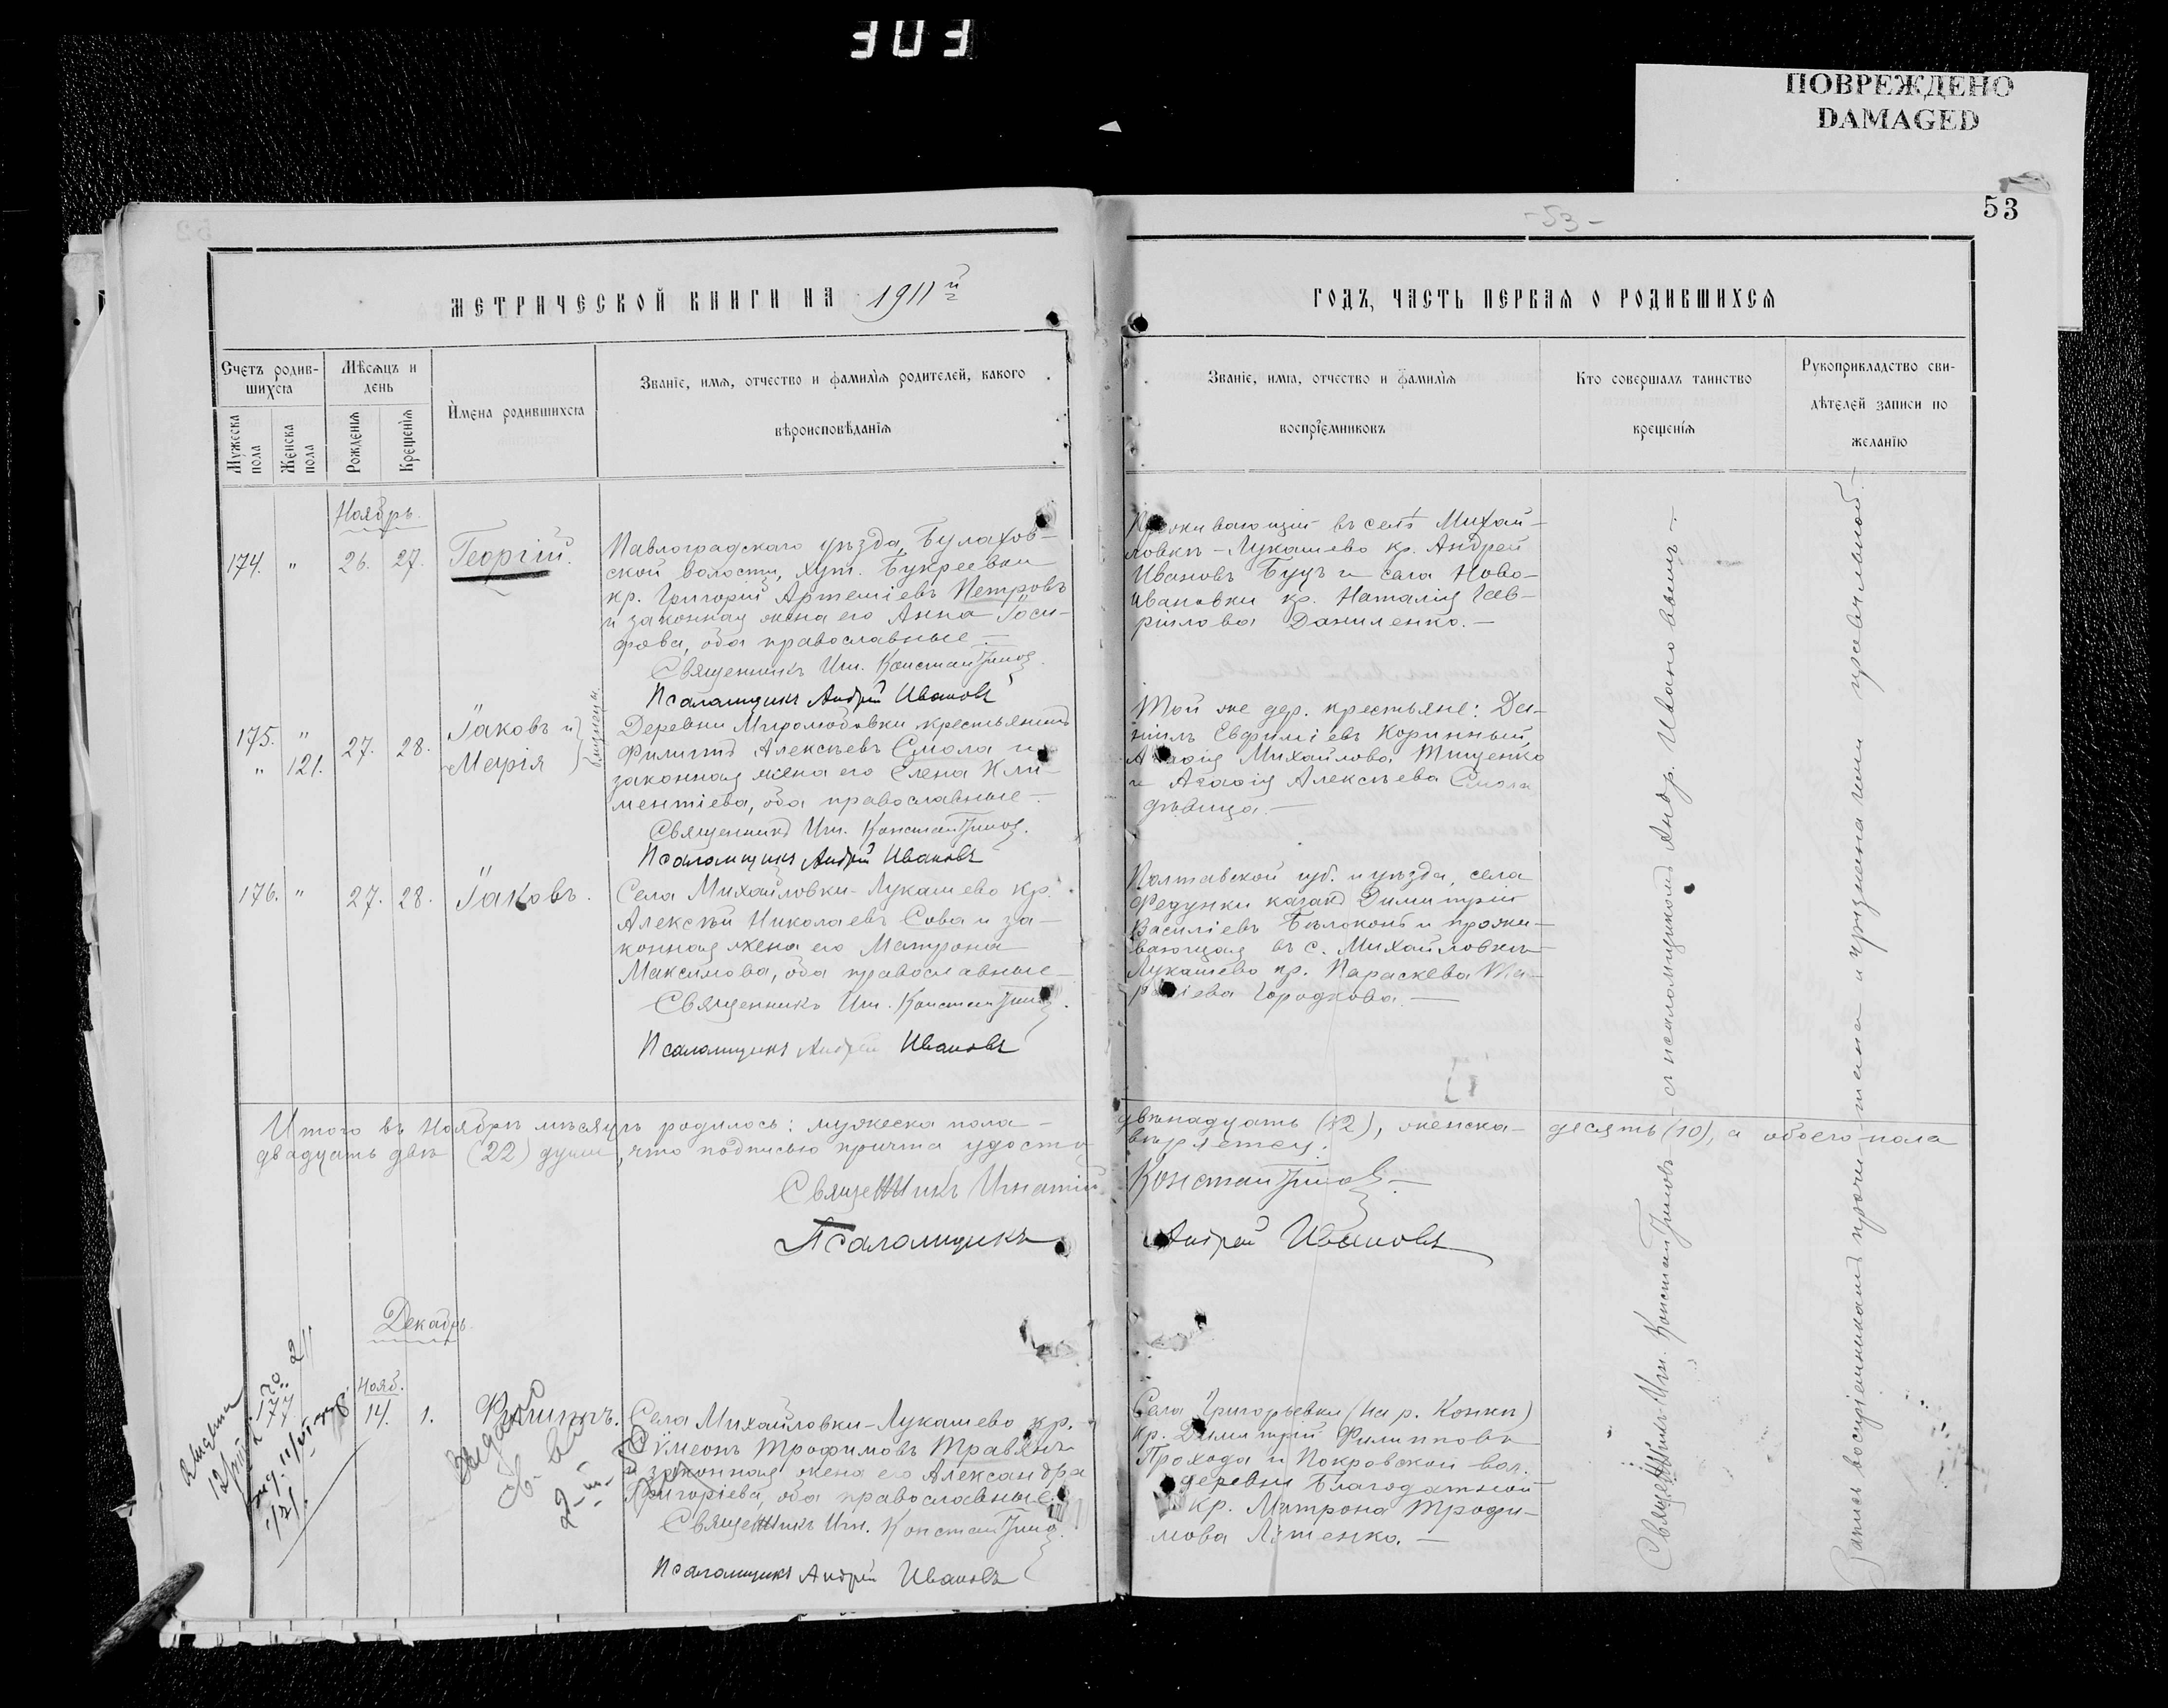 303
ПОВРЕЖДЕНО
DAMAGED
53
-53-
МЕТРИЧЕСКОЙ КНИГИ НА 1911й
ГОДЪ, ЧАСТЬ ПЕРВАЯ О РОДИВШИХСЯ
Счетъ родив-
шихся
Мѣсяцъ и
день
Мужеска
пола
Женска
пола
Рожденія
Крещенія
Имена родившихся
Званіе, имя, отчество и фамилія родителей, какого
вѣроисповѣданія
Званіе, имя, отчество и фамилія
воспріемниковъ
Кто совершалъ таинство
крещенія
Рукоприкладство сви-
дѣтелей записи по
желанію
Ноябрь.
174. " 26. 27. Георгій.
Павлоградскаго уѣзда, Булахов-
ской волости, хут. Букреевки
кр. Григорій Артеміевъ Петровъ
и законная жена его Анна Іоси-
фова, оба православные —
Священникъ Игн. Константинов.
Псаломщикъ Андрей Ивановъ
Проживающій въ селѣ Михай-
ловкѣ-Лукашево кр. Андрей
Ивановъ Буцъ и села Ново-
ивановки кр. Наталія Гав-
рілова Даниленко. —
175. " 27. 28. Іаковъ и
" 121. Марія
близнецы
Деревни Миролюбовки крестьянинъ
Филиппъ Алексѣевъ Смола и
законная жена его Елена Кли-
ментіева, оба православные —
Священникъ Игн. Константинов.
Псаломщикъ Андрей Ивановъ
Той же дер. крестьяне: Да-
ніилъ Евфиміевъ Коринный,
Агафія Михайлова Тищенко
и Агафія Алексѣева Смола
дѣвица. —
176. " 27. 28. Іаковъ.
Села Михайловки-Лукашево кр.
Алексѣй Николаевъ Сова и за-
конная жена его Матрона
Максимова, оба православные —
Священникъ Игн. Константинов.
Псаломщикъ Андрей Ивановъ
Полтавской губ. и уѣзда, села
Федунки казакъ Димитрій
Василіевъ Бѣлоконь и прожи-
вающая въ с. Михайловкѣ-
Лукашево кр. Параскева Та-
расіева Городкова. —
Итого въ Ноябрѣ мѣсяцѣ родилось: мужеска пола — двѣнадцать (12), женска — десять (10), а обоего пола
двадцать двѣ (22) души, что подписью причта удосто- вѣряется:
Священникъ Игнатій Константинов —
Псаломщикъ Андрей Ивановъ
Декабрь.
Нояб.
14. 1. Филиппъ.
Села Михайловки-Лукашево кр.
Сѵмеонъ Трофимовъ Травянъ
и законная жена его Александра
Григоріева, оба православные.
Священникъ Игн. Константинов.
Псаломщикъ Андрей Ивановъ
Села Григорьевки (на р. Конкѣ)
кр. Димитрій Филипповъ
Прохода и Покровской вол.
деревни Благодатной
кр. Матрона Трофи-
мова Лященко. —
Священникъ Игн. Константиновъ съ псаломщикомъ Андр. Ивановымъ —
Запись воспріемникамъ прочитана и признана ими правильной —